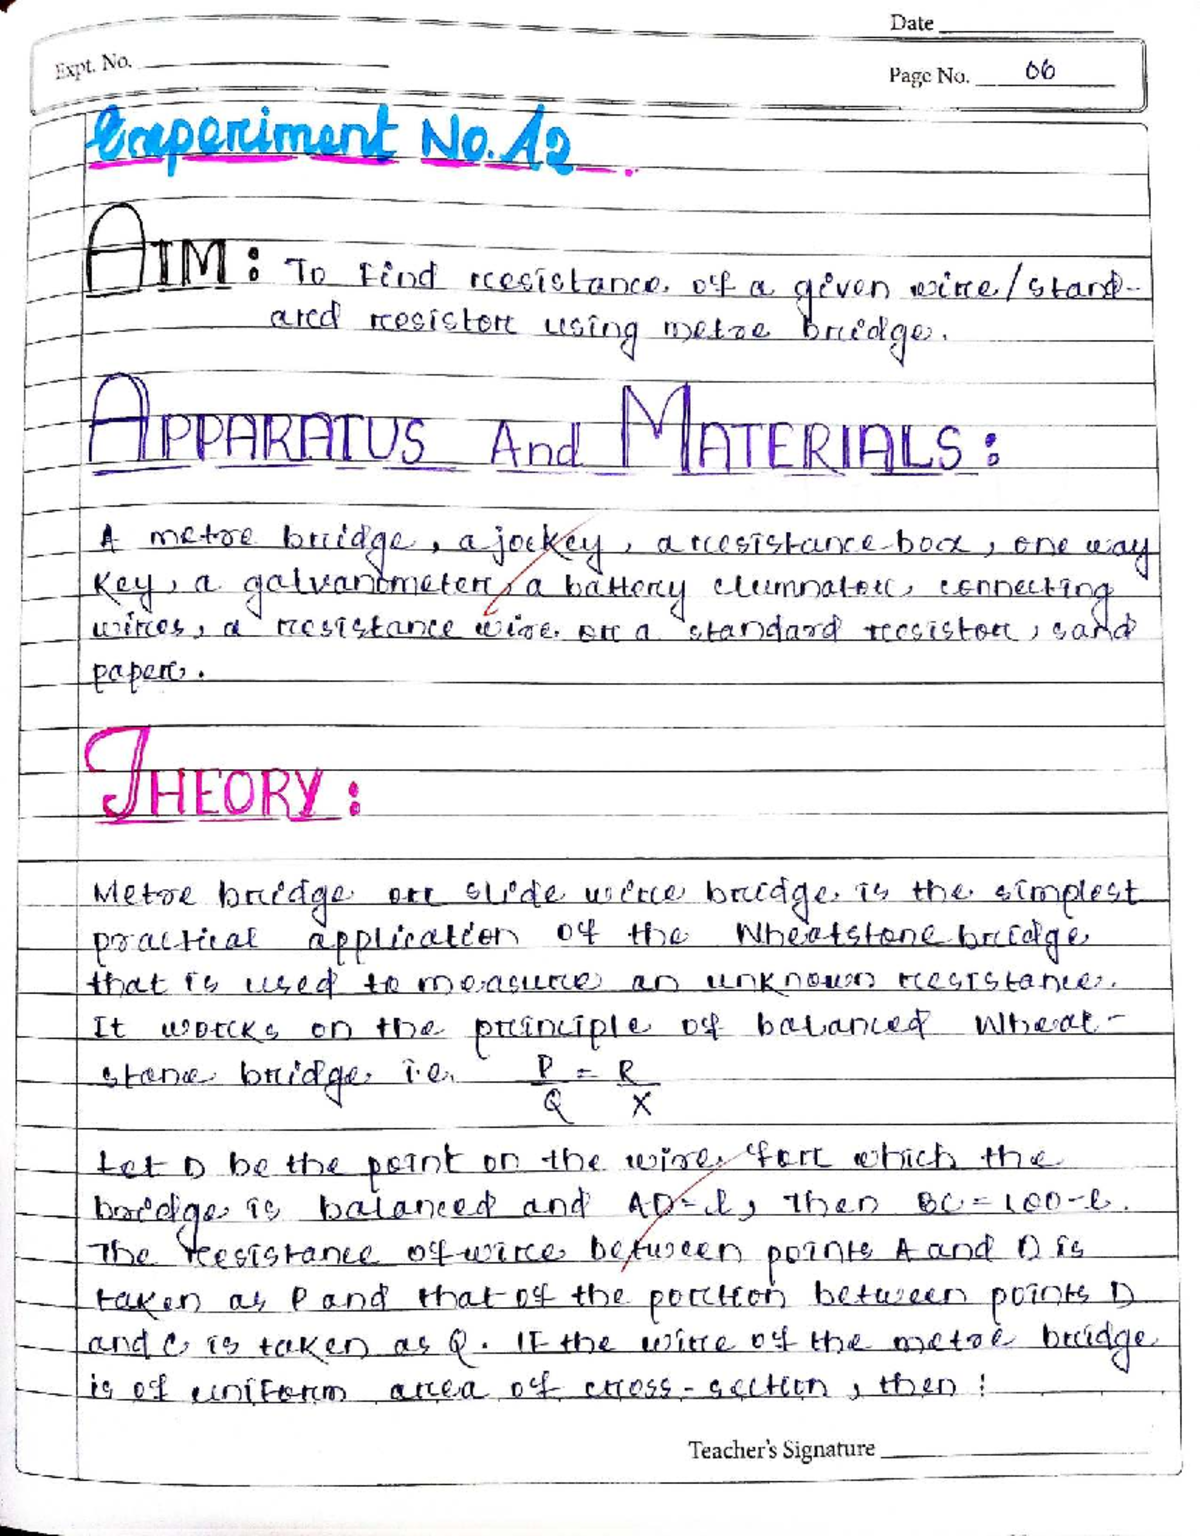 Date
Expt. No.
Page No. 06
Experiment No. 12
AIM: To find resistance of a given wire/stand-
ard resistor using metre bridge.
APPARATUS And MATERIALS:
A metre bridge, a jockey, a resistance box, one way
key, a galvanometer, a battery elimnator, connecting
wires, a resistance wire or a standard resistor, sand
paper.
THEORY:
Metre bridge or slide wire bridge is the simplest
practical application of the Wheatstone bridge
that is used to measure an unknown resistance.
It works on the principle of balanced Wheat-
stone bridge i.e. P/Q = R/X
Let D be the point on the wire for which the
bridge is balanced and AD=l, then BC=100-l.
The resistance of wire between points A and D is
taken as P and that of the portion between points D
and C is taken as Q. If the wire of the metre bridge
is of uniform area of cross-section, then:
Teacher's Signature